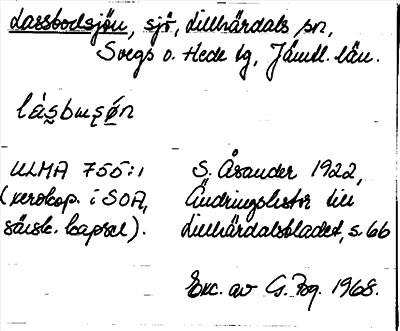 Lassbodsjön, sjö, Lillhärdals sn,
Svegs o. Hede tg, Jämtl. län.
ULMA 755:1 S. Åsander 1922,
(xerokop. i SOA, Ändringslista till
särsk. kapsel). Lillhärdalsbladet, s. 66
Exc. av G. Bg. 1968.